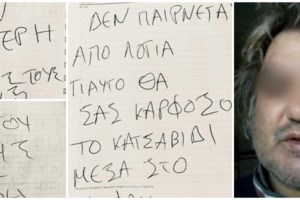 ΤΕΡΗ
ΣΤΟΥΣ
ΤΟΥ
ΔΕΝ ΠΑΙΡΝΕΤΑ
ΑΠΟ ΛΟΓΙΑ
ΓΙΑΥΤΟ ΘΑ
ΣΑΣ ΚΑΡΦΟΣΟ
ΤΟ ΚΑΤΣΑΒΙΔΙ
ΜΕΣΑ ΣΤΟ